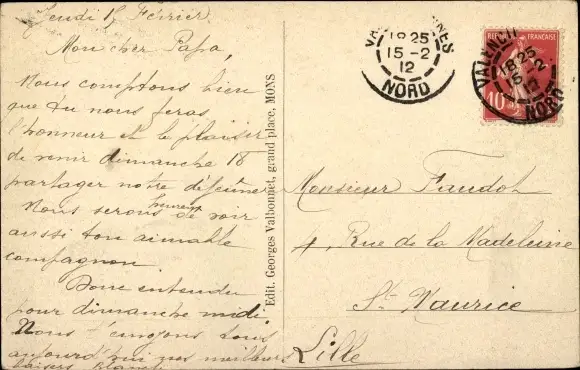 Jeudi 15 Février.
Mon cher Papa,
Nous comptons bien
que tu nous feras
l'honneur et le plaisir
de venir dimanche 18
partager notre déjeuner
Nous serons heureux de voir
aussi ton aimable
compagnon.
Donc entendu
pour dimanche midi.
Nous t'envoyons tous
aujourd'hui nos meilleurs
baisers
Edit. Georges Valbonnet, grand place, MONS
18 25
15-2
12
NORD
REPUB FRANÇAISE
10
VALENCI
18 25
15-2
12
NORD
Monsieur Faudot
4, Rue de la Madeleine
St Maurice
Lille